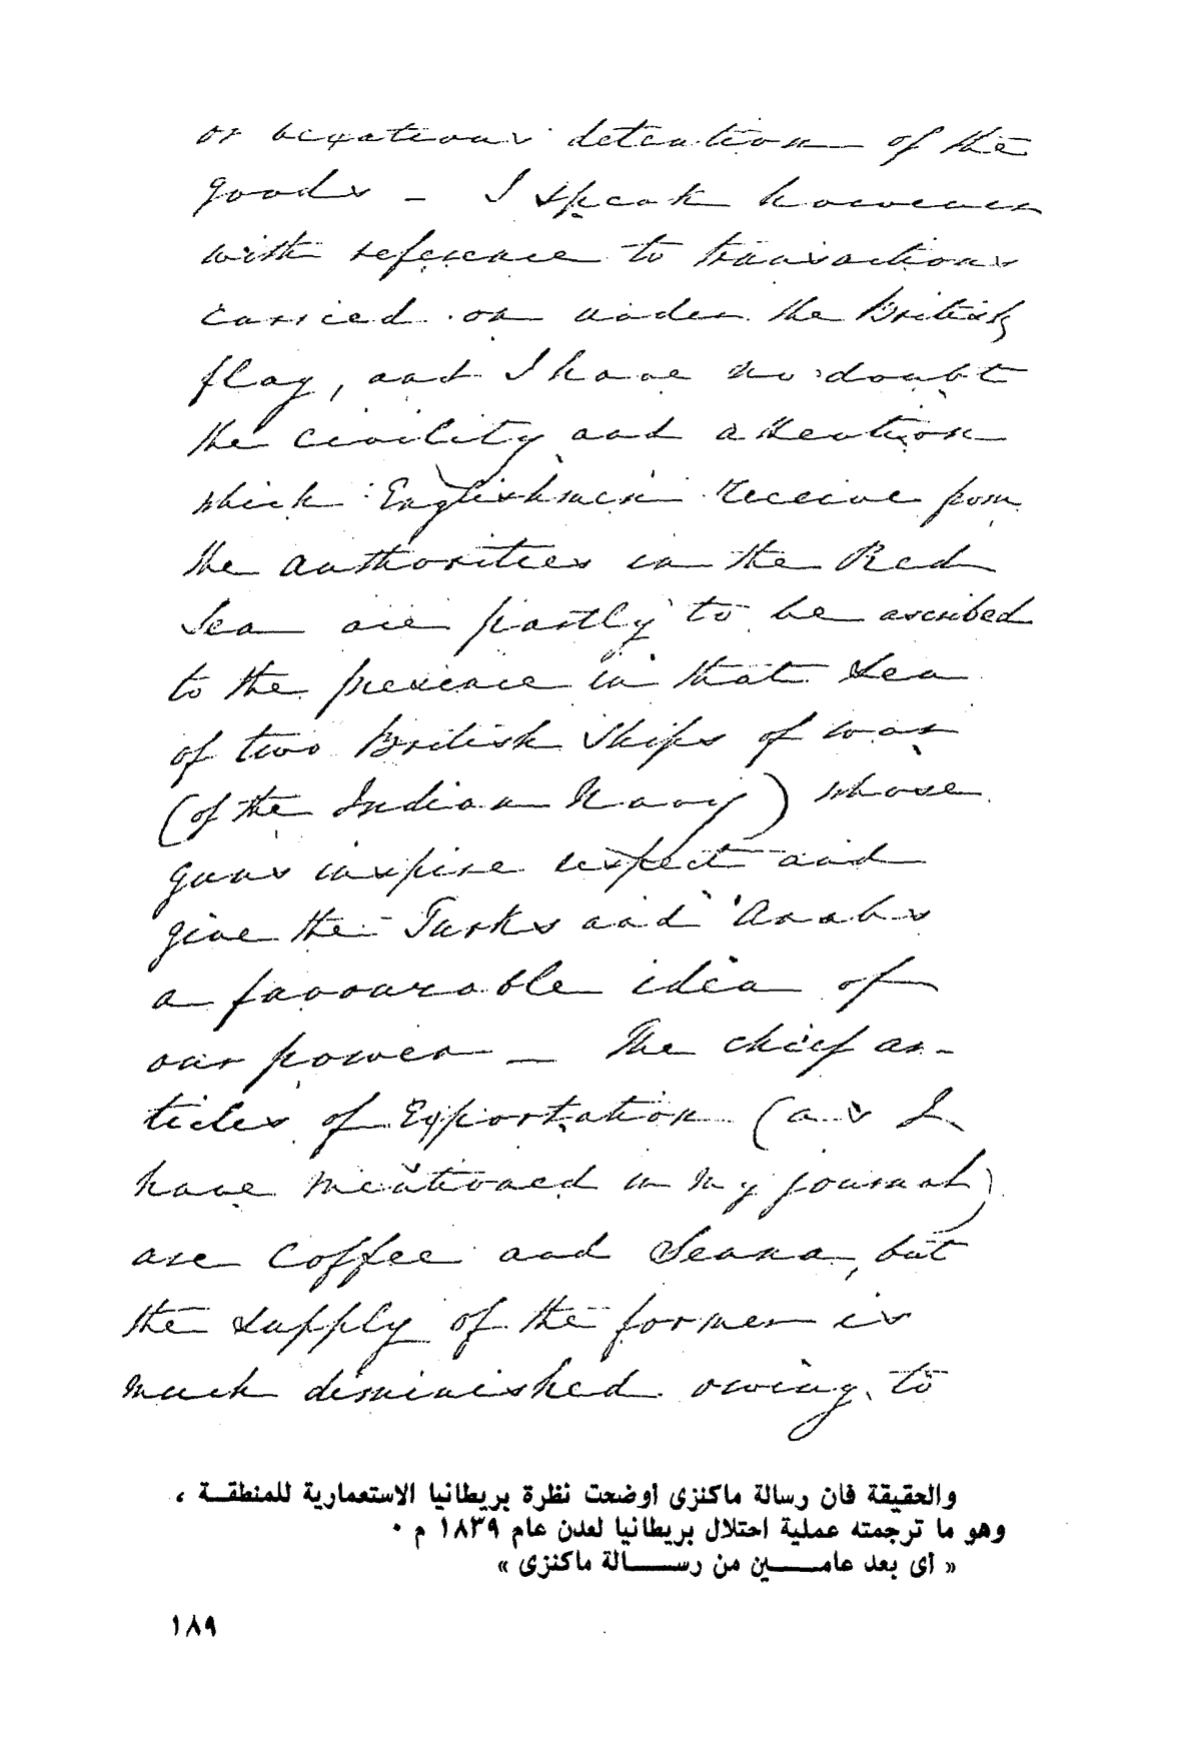 or vexatious detention of the
goods – I speak however
with reference to transactions
carried on under the British
flag, and I have no doubt
the civility and attention
which Englishmen receive from
the authorities in the Red
Sea are partly to be ascribed
to the presence in that Sea
of two British Ships of war
(of the Indian Navy) whose
guns inspire respect and
give the Turks and Arabs
a favourable idea of
our power – The chief ar-
ticles of Exportation (as I
have mentioned in my journal)
are Coffee and Senna, but
the supply of the former is
much diminished owing to
والحقيقة فان رسالة ماكنزى أوضحت نظرة بريطانيا الاستعمارية للمنطقة ،
وهو ما ترجمته عملية احتلال بريطانيا لعدن عام ١٨٣٩ م ٠
« أى بعد عامين من رسالة ماكنزى »
١٨٩